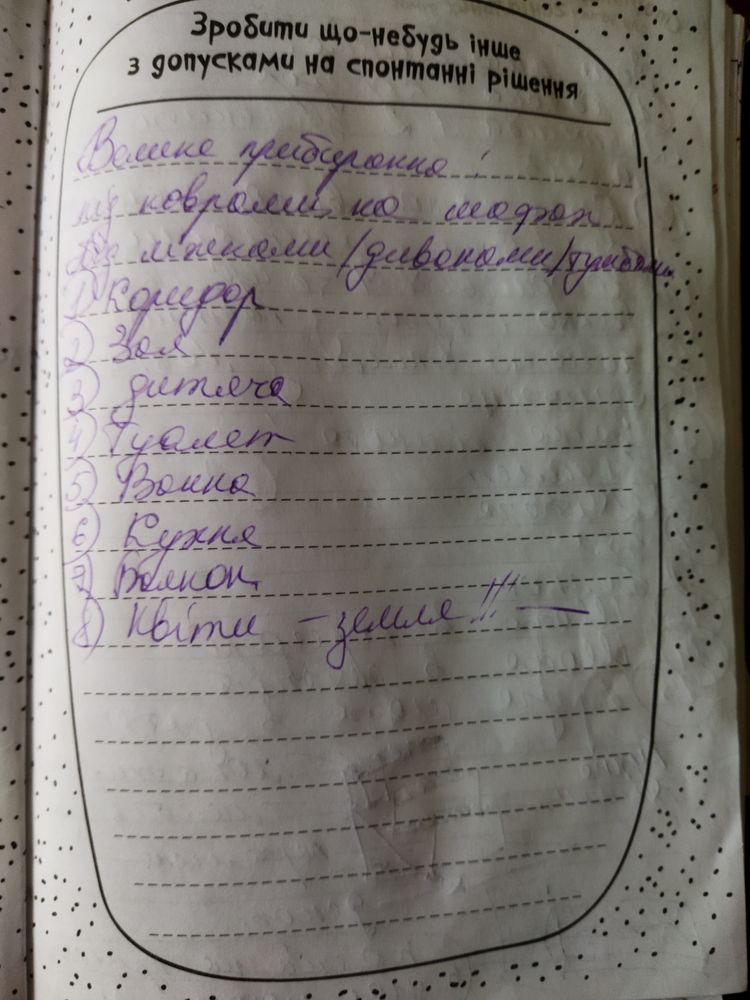 Зробити що-небудь інше
з допусками на спонтанні рішення
Велике прибирання!
під коврами, на шафах
Під ліжками/диванами/тумбами
1) Коридор
2) Зал
3) дитяча
4) Туалет
5) Ванна
6) Кухня
7) Балкон
8) Квіти - земля!!! —